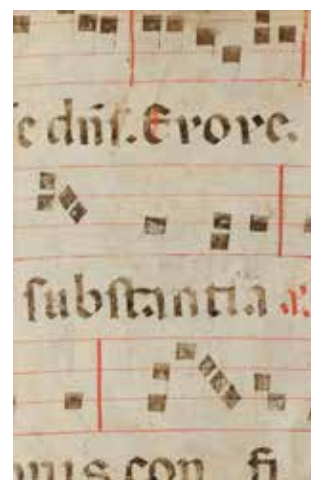 ſe dñſ. Erore.
ſubſtantia
nus con fi